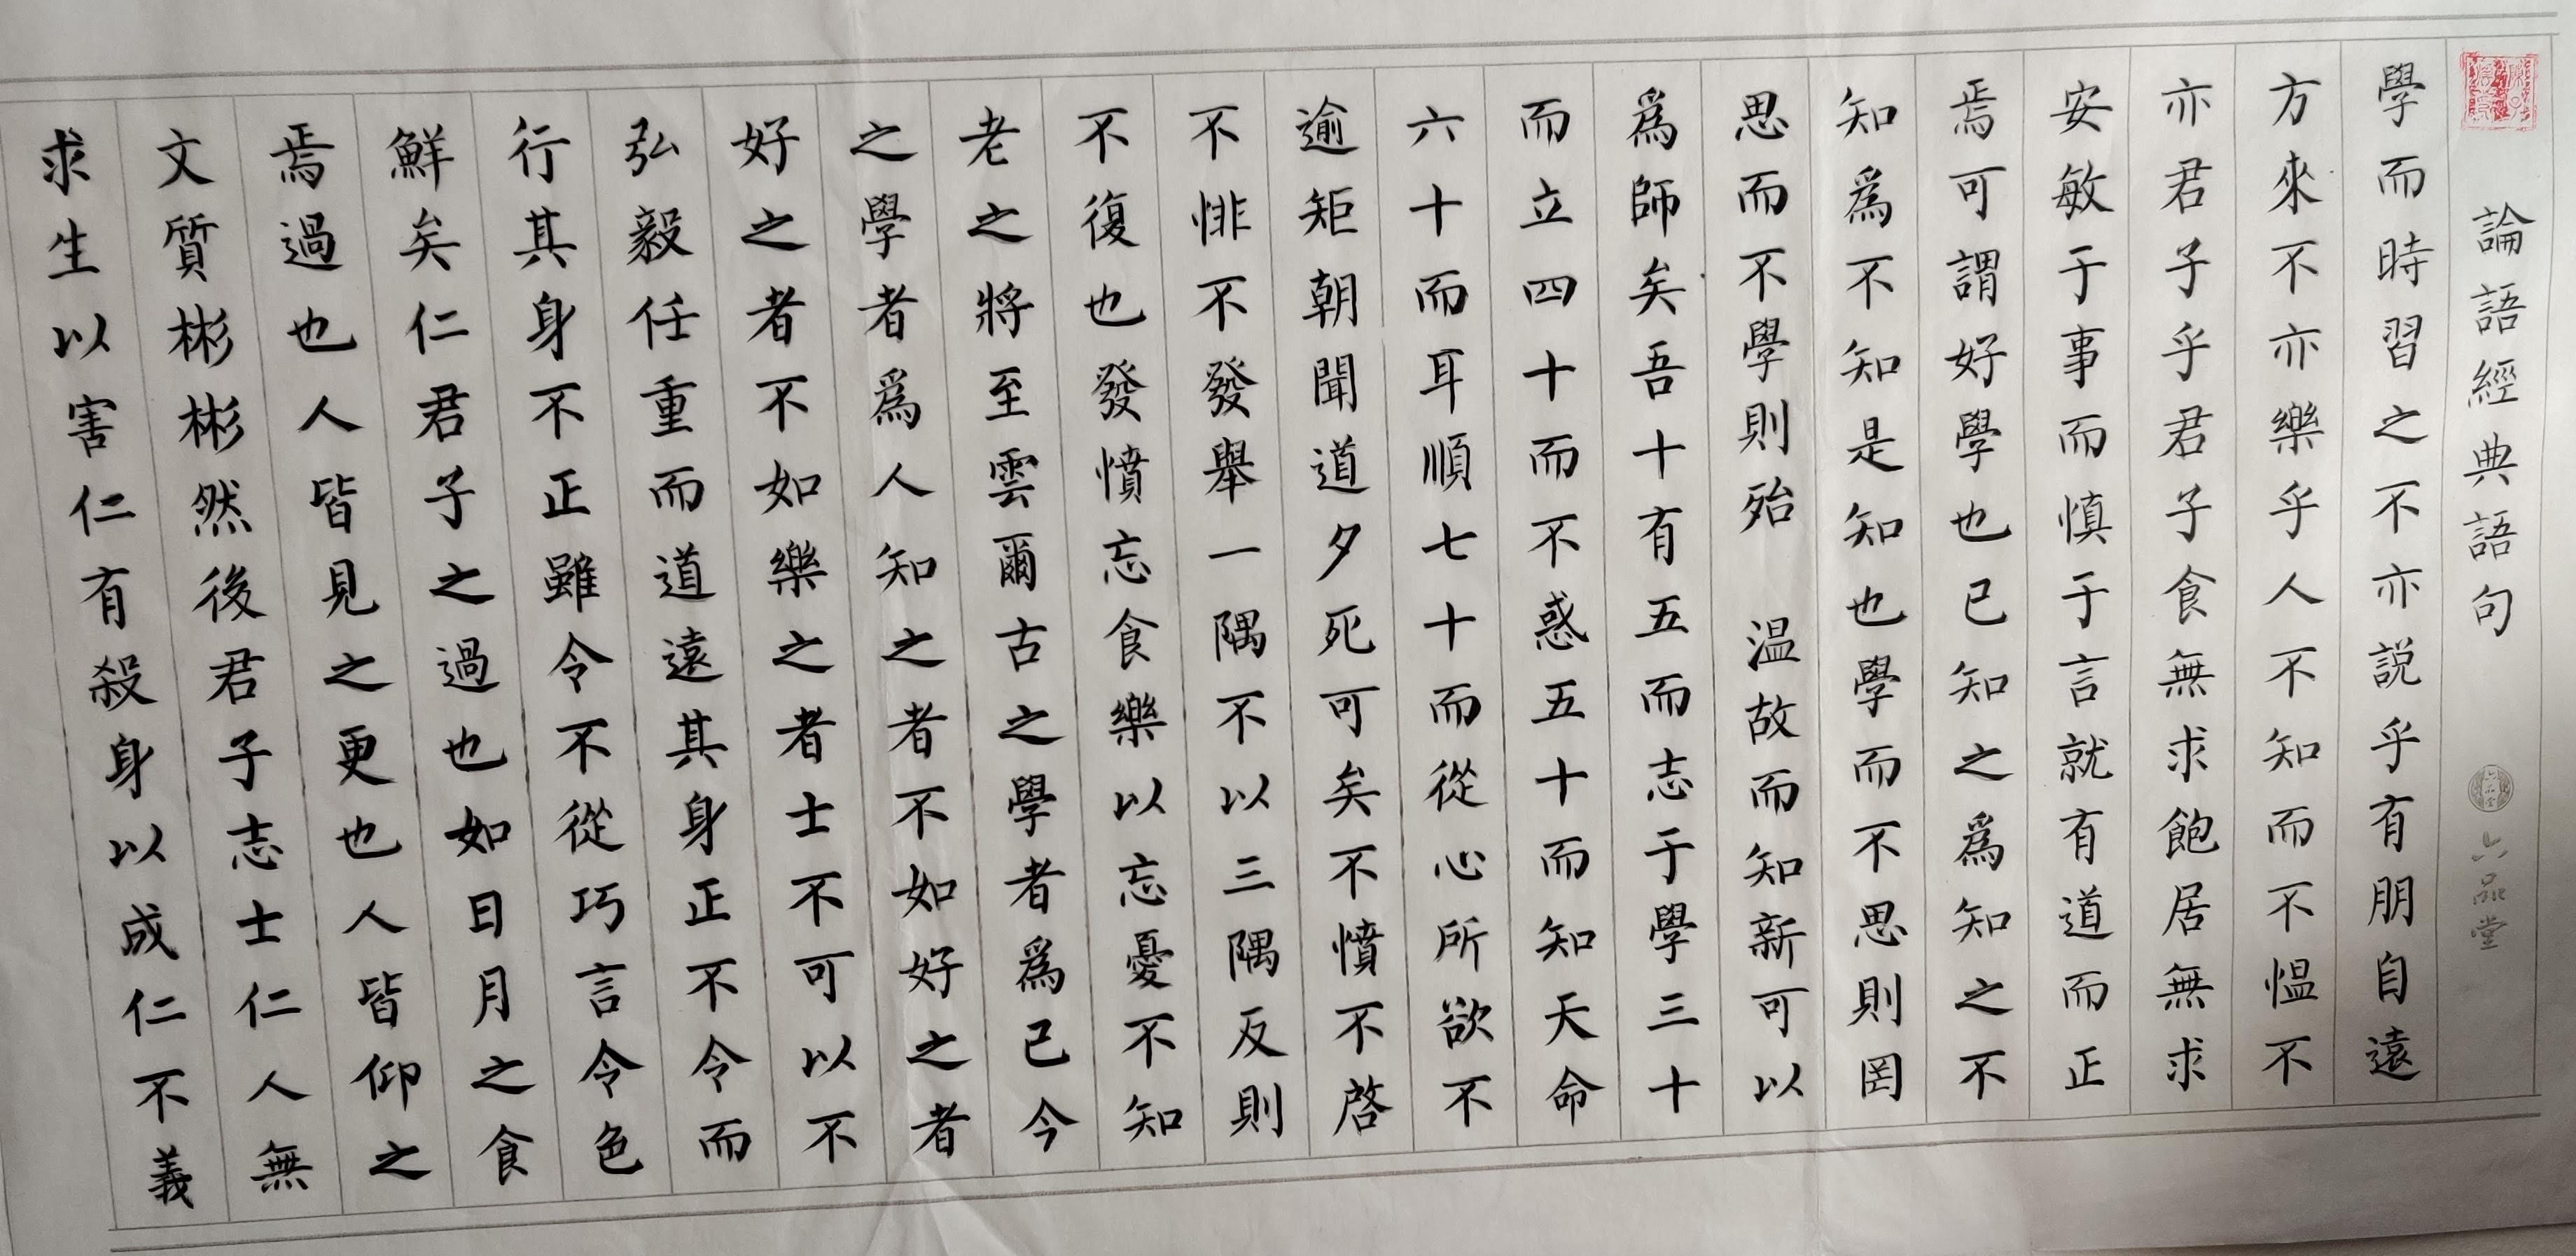 論語經典語句
六品堂
學而時習之不亦説乎有朋自遠
方來不亦樂乎人不知而不愠不
亦君子乎君子食無求飽居無求
安敏于事而慎于言就有道而正
焉可謂好學也已知之爲知之不
知爲不知是知也學而不思則罔
思而不學則殆 温故而知新可以
爲師矣吾十有五而志于學三十
而立四十而不惑五十而知天命
六十而耳順七十而從心所欲不
逾矩朝聞道夕死可矣不憤不啓
不悱不發舉一隅不以三隅反則
不復也發憤忘食樂以忘憂不知
老之將至雲爾古之學者爲己今
之學者爲人知之者不如好之者
好之者不如樂之者士不可以不
弘毅任重而道遠其身正不令而
行其身不正雖令不從巧言令色
鮮矣仁君子之過也如日月之食
焉過也人皆見之更也人皆仰之
文質彬彬然後君子志士仁人無
求生以害仁有殺身以成仁不義